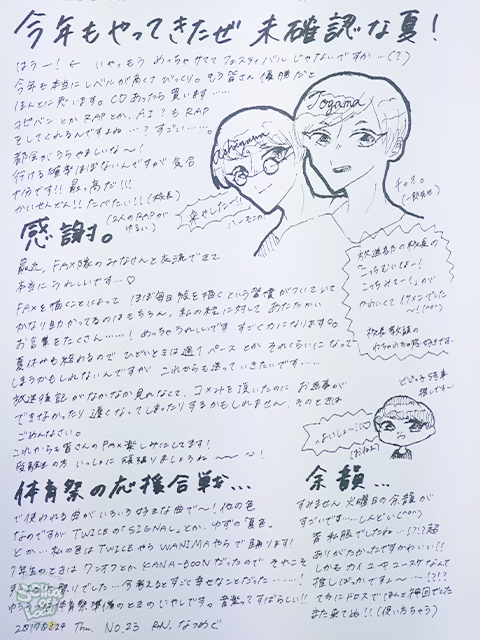 今年もやってきたぜ 未確認な夏!
はうー! ← いやっもう めっちゃサマてフェスティバル じゃないですか…(?)
今年も本当に レベルが高くて びっくり。もう皆さん 優勝だと
ほんとに思います。CDあったら買います……
コピバン とか RAPとか、AI?も RAP
をしてくれるんですよね…?すごい……
都会がうらやましいな〜!
行ける確率ほぼないんですが 気合
十分です!! 最っ高だ!!!
かいせんどん!! たべたい!!(校長)
(2人のRAPが
Ashizawa
Togama
(ハーモニカ)
チャイ。
感謝。
最近、FAX隊のみなさんと交流できて
本当にうれしいです…♡
FAXを描くことによって ほぼ毎日絵を描くという習慣がついていて
かなり助かってるのはもちろん、私の絵に対して あたたかい
お言葉をたくさん……! めっちゃうれしいです すごく力になります。
夏休みも終わるので ひどいときは週1ペース とか それくらいになって
しまうかもしれないんですが これからも送っていきたいです…
放送後記がなかなか見れなくて、コメントを頂いたのに お返事が
できなかったり 遅くなってしまったりするかもしれません、そのときは
ごめんなさい。
これからも皆さんの FAX楽しみにしてます!
受験生の方 いっしょに 頑張りましょうね 〜〜!
放送後の校長の
「こっちむいてよー!
こっちみてー!」が
やわいくて イケメンでした
っよいしょー!!
(おねえ)
体育祭の応援合戦…
で使われる曲がいろいろ好きな曲で〜! 他の色
なのですが TWICEの「SIGNAL」とか、ゆずの「夏色」
とか… 私の色は TWICEやら WANIMAやらで踊ります!
7年生のときは ワンオクとか KANA-BOONだったので それこそ
祭りでした…今考えるとすごく幸せなことだった……!
体育祭準備のときの いやしです。音楽ってすばらしい!!
20170824 Thu. NO.23 RN. なつめぐ
余韻…
すみません 火曜日の余韻が
すごいです…しんどい(^o^)
皆私服でしたね…!?!?超
ありがたかったですかわいい!!
しかも カイユウ ユースケなんて
推しばっかですよ〜…!?!?
てかにドロスでほんと神回でした
また来てね!!